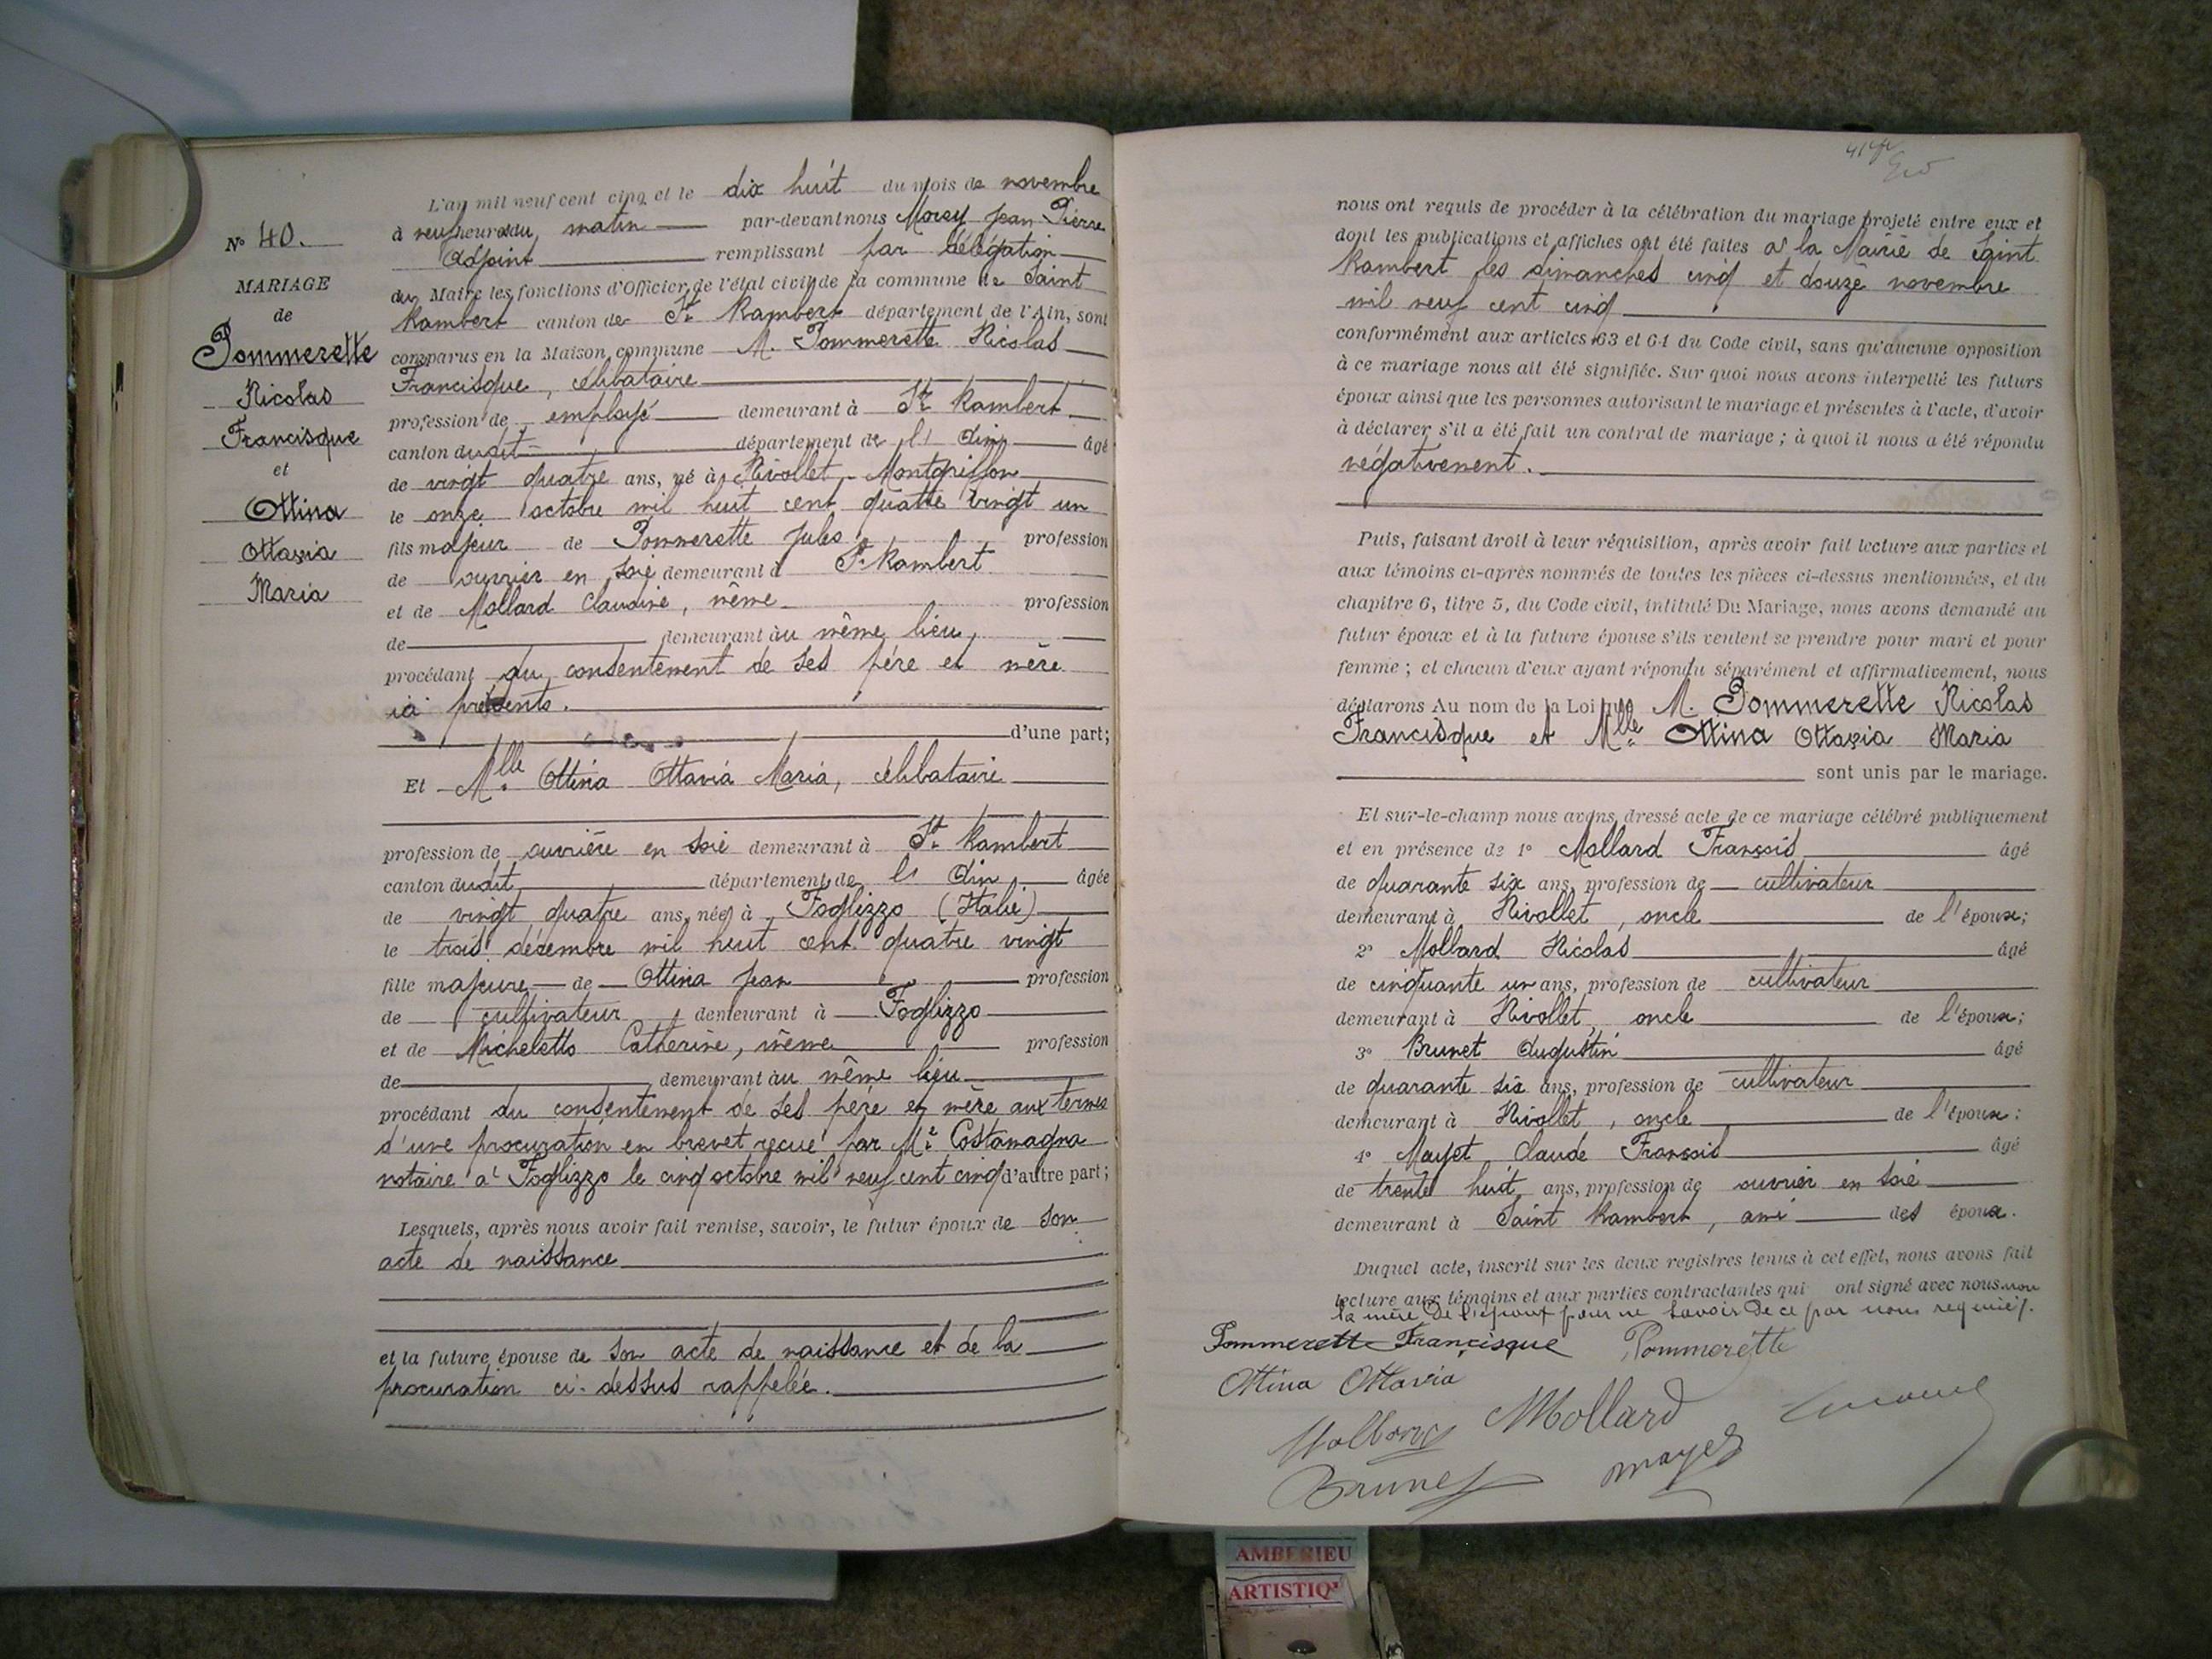 N° 40.
MARIAGE
de
Pommerette
Nicolas
Francisque
et
Ottina
Ottavia
Maria
L'an mil neuf cent cinq et le dix huit du mois de novembre
à neuf heures du matin par-devant nous Morey Jean Pierre
Adjoint remplissant par délégation
du Maire les fonctions d'Officier de l'état civil de la commune de Saint
Rambert canton de St Rambert département de l'Ain, sont
comparus en la Maison commune M. Pommerette Nicolas
Francisque, célibataire
profession de employé demeurant à St Rambert
canton dudit département de l'Ain âgé
de vingt quatre ans, né à Nivollet-Montgriffon
le onze octobre mil huit cent quatre vingt un
fils majeur de Pommerette Jules profession
de ouvrier en soie demeurant à St Rambert
et de Mollard Claudine, même profession
de demeurant au même lieu
procédant du consentement de ses père et mère
ici présents.
d'une part;
Et Mlle Ottina Ottavia Maria, célibataire
profession de ouvrière en soie demeurant à St Rambert
canton dudit département de l'Ain âgée
de vingt quatre ans, née à Foglizzo (Italie)
le trois décembre mil huit cent quatre vingt
fille majeure de Ottina Jean profession
de cultivateur demeurant à Foglizzo
et de Micheletto Catherine, même profession
de demeurant au même lieu
procédant du consentement de ses père et mère aux termes
d'une procuration en brevet reçue par Me Costamagna
notaire à Foglizzo le cinq octobre mil neuf cent cinq d'autre part;
Lesquels, après nous avoir fait remise, savoir, le futur époux de son
acte de naissance
et la future épouse de son acte de naissance et de la
procuration ci-dessus rappelée.
nous ont requis de procéder à la célébration du mariage projeté entre eux et
dont les publications et affiches ont été faites à la Mairie de Saint
Rambert les dimanches cinq et douze novembre
mil neuf cent cinq
conformément aux articles 63 et 64 du Code civil, sans qu'aucune opposition
à ce mariage nous ait été signifiée. Sur quoi nous avons interpellé les futurs
époux ainsi que les personnes autorisant le mariage et présentes à l'acte, d'avoir
à déclarer s'il a été fait un contrat de mariage; à quoi il nous a été répondu
négativement.
Puis, faisant droit à leur réquisition, après avoir fait lecture aux parties et
aux témoins ci-après nommés de toutes les pièces ci-dessus mentionnées, et du
chapitre 6, titre 5, du Code civil, intitulé Du Mariage, nous avons demandé au
futur époux et à la future épouse s'ils veulent se prendre pour mari et pour
femme; et chacun d'eux ayant répondu séparément et affirmativement, nous
déclarons Au nom de la Loi que M. Pommerette Nicolas
Francisque et Mlle Ottina Ottavia Maria
sont unis par le mariage.
Et sur-le-champ nous avons dressé acte de ce mariage célébré publiquement
et en présence de 1° Mollard François âgé
de quarante six ans, profession de cultivateur
demeurant à Nivollet, oncle de l'époux;
2° Mollard Nicolas âgé
de cinquante un ans, profession de cultivateur
demeurant à Nivollet, oncle de l'époux;
3° Brunet Augustin âgé
de quarante six ans, profession de cultivateur
demeurant à Nivollet, oncle de l'époux:
4° Mayet Claude François âgé
de trente huit ans, profession de ouvrier en soie
demeurant à Saint Rambert, ami des époux.
Duquel acte, inscrit sur les deux registres tenus à cet effet, nous avons fait
lecture aux témoins et aux parties contractantes qui ont signé avec nous non
la mère de l'époux pour ne savoir de ce par nous requise.
Pommerette Francisque Pommerette
Ottina Ottavia
Mollard Mollard
Brunet mayet
AMBERIEU
ARTISTIQ'